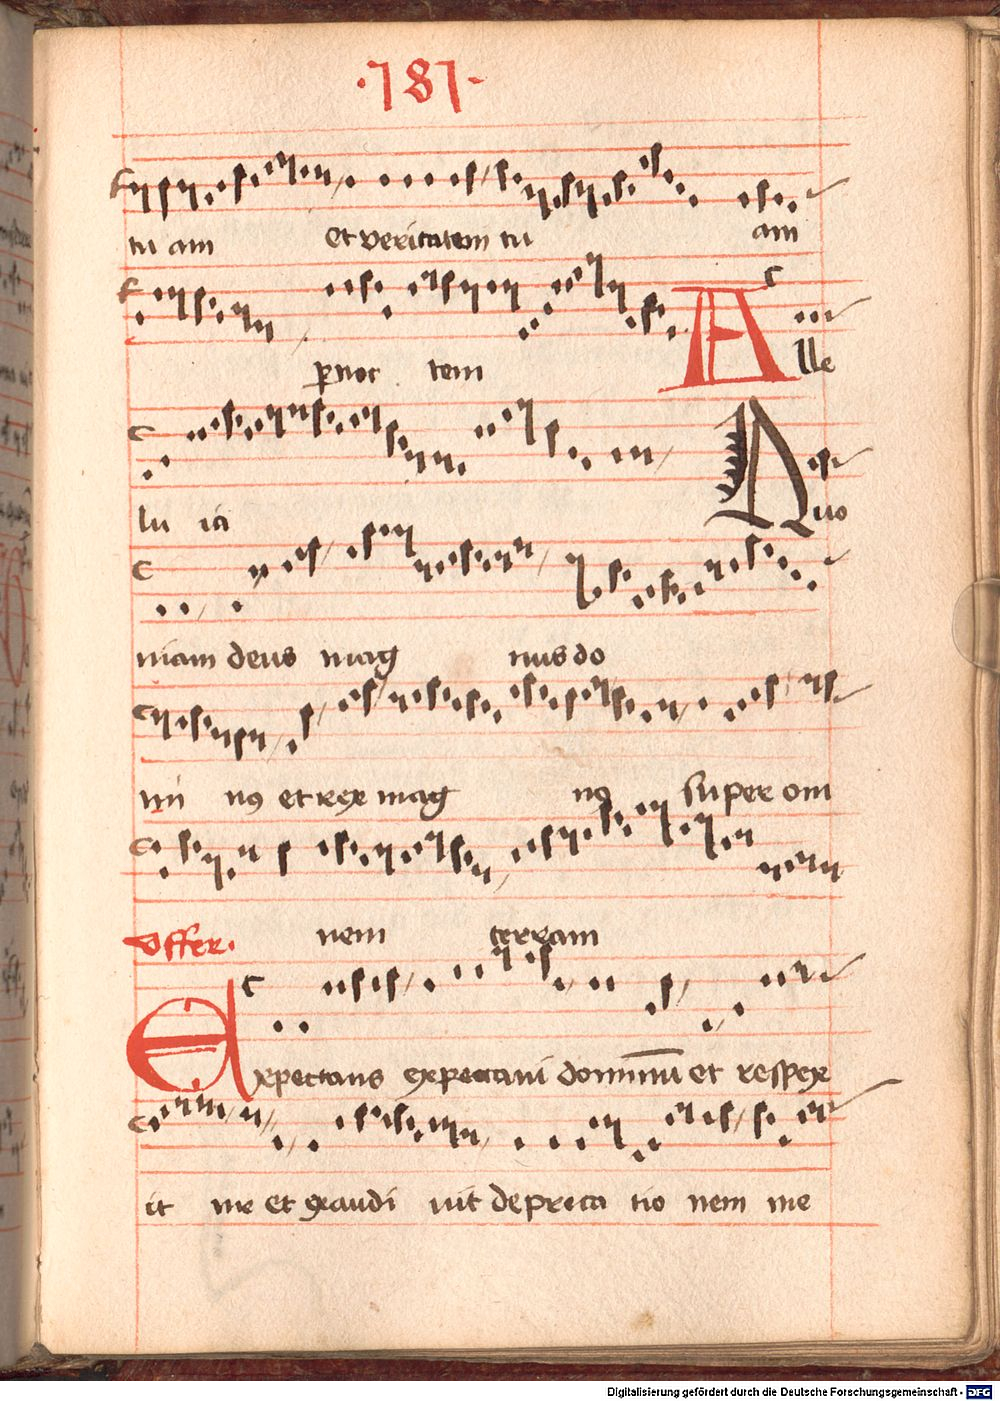 ·181·
tu am et veritatem tu am
p noc tem A lle
lu ia Quo
niam deus mag nus do
mi nꝯ et rex mag nꝯ super om
Offer. nem terram
Expectans expectaui dominum et respex
it me et exaudi uit depreca tio nem me
Digitalisierung gefördert durch die Deutsche Forschungsgemeinschaft - DFG